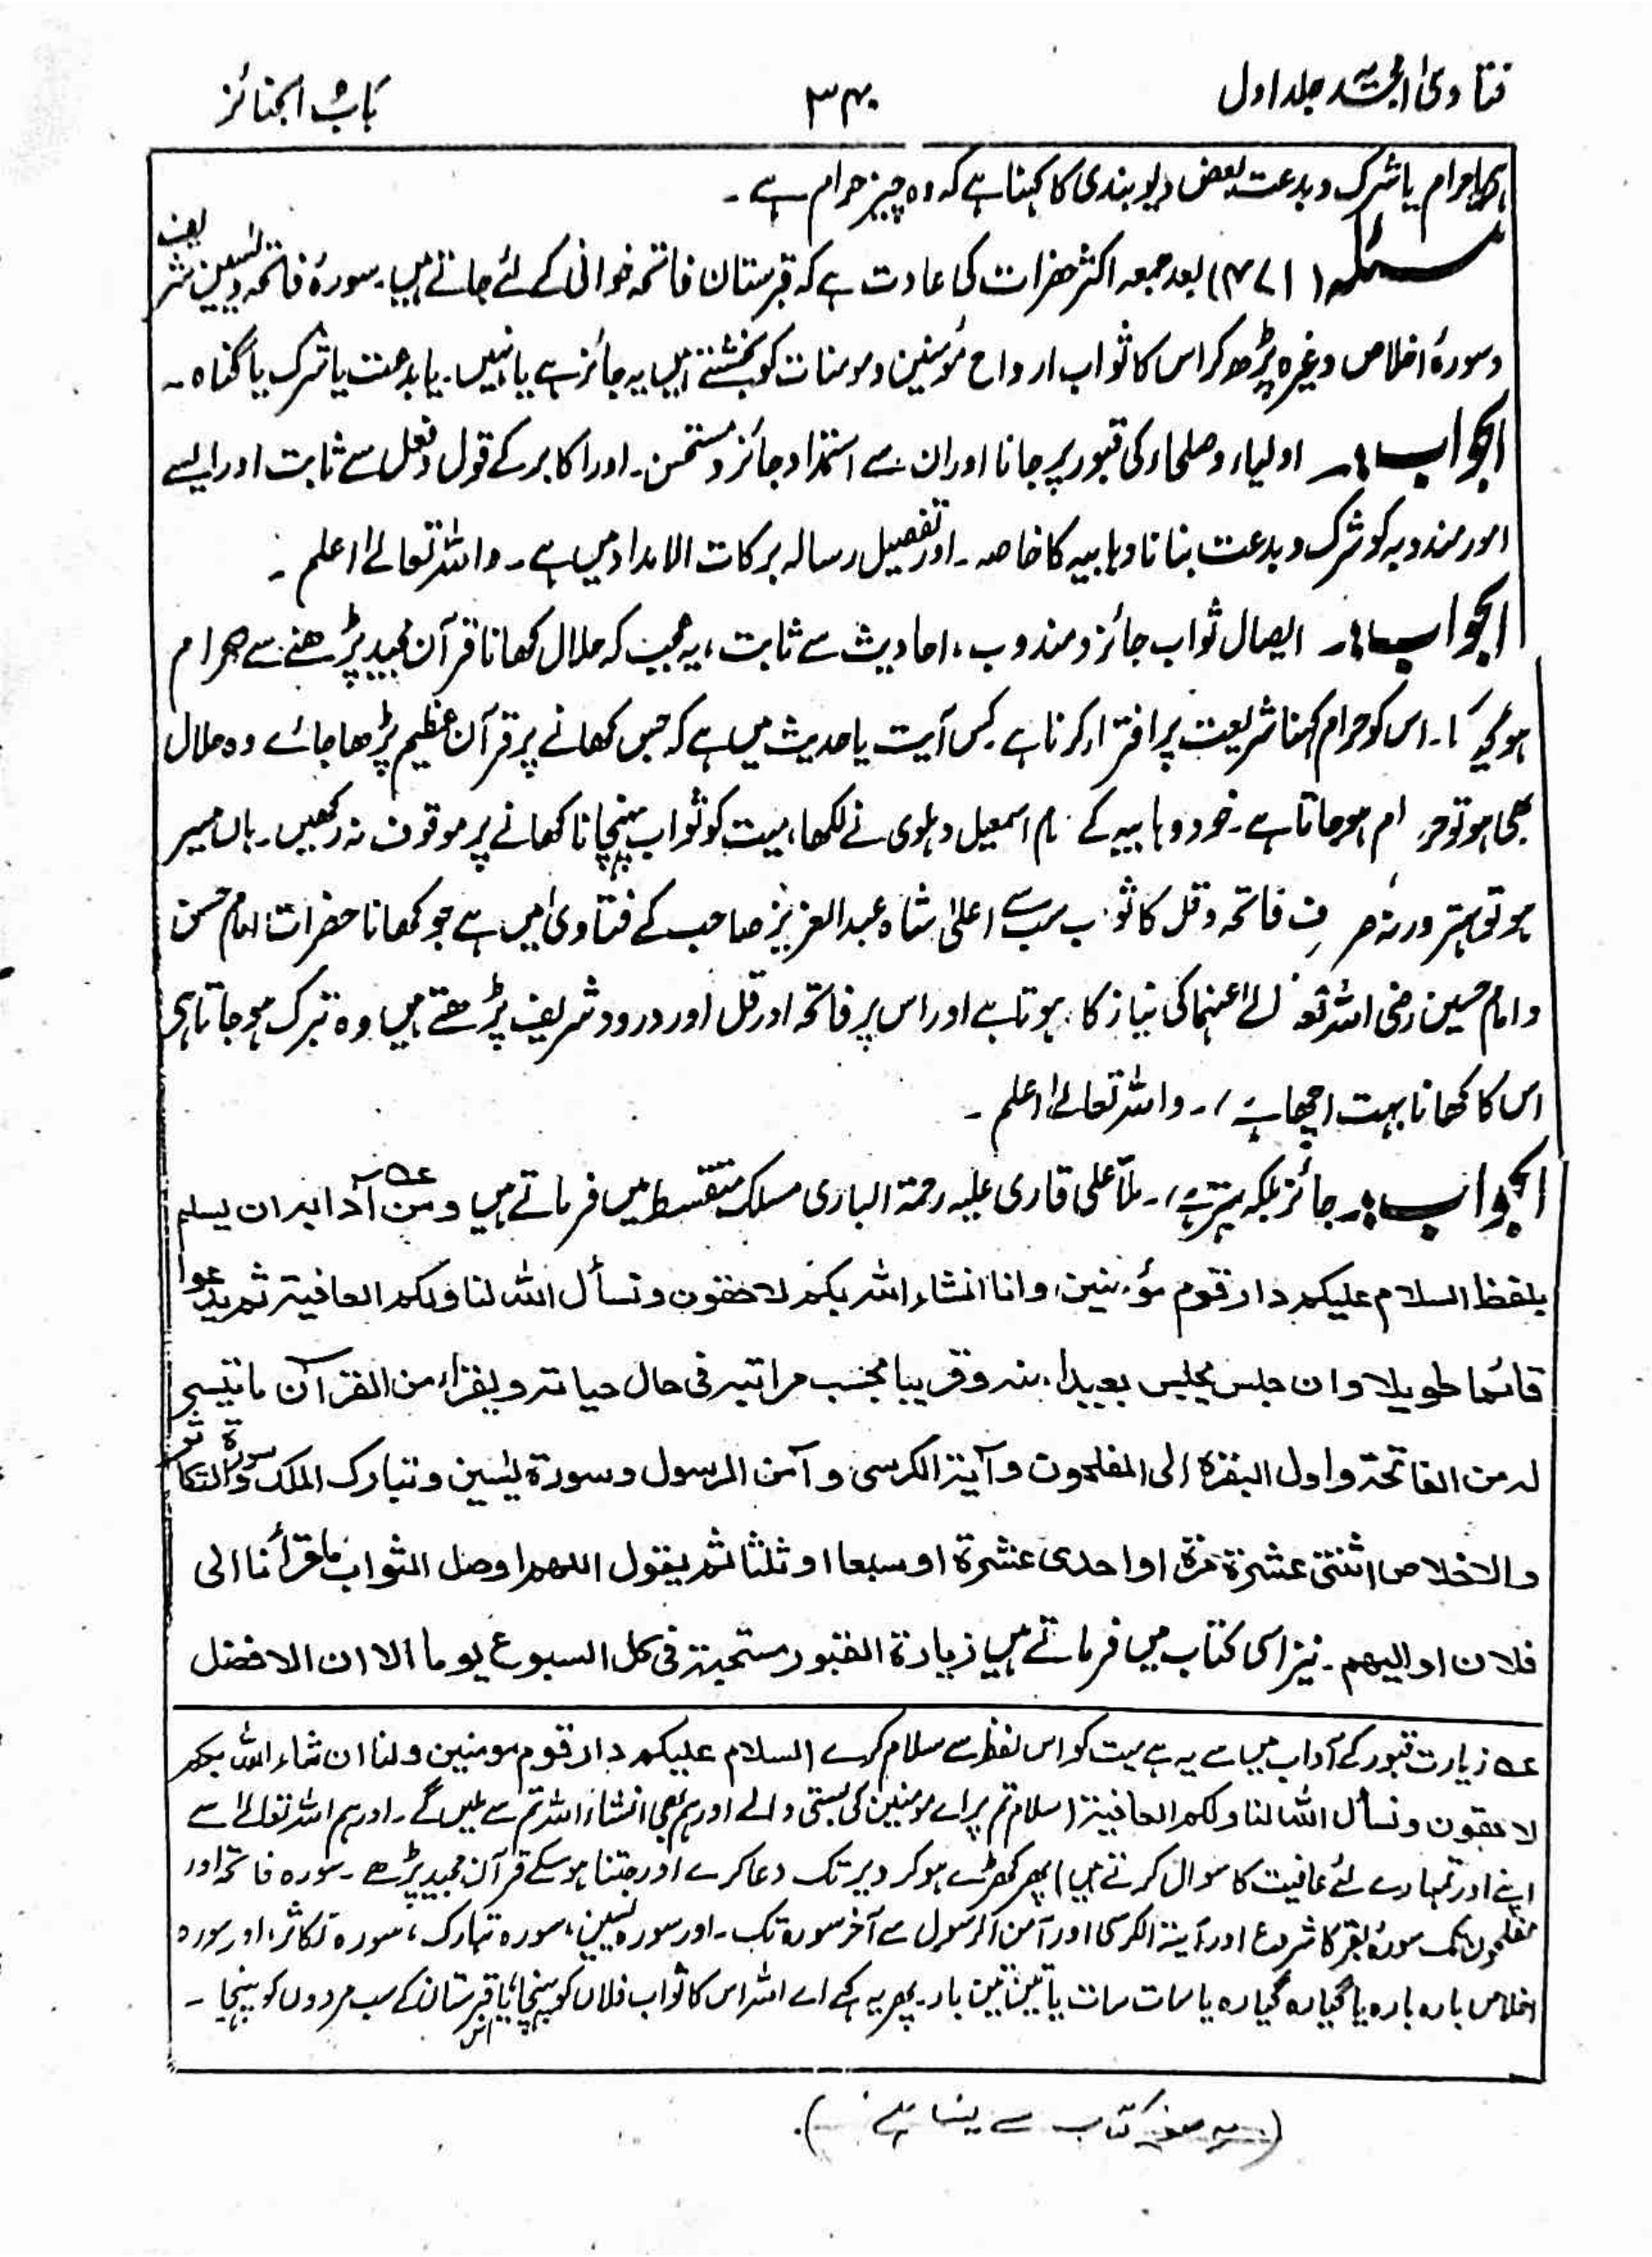 فتاویٰ امجدیہ جلد اول
۳۴۰
باب الجنائز
ہی یا حرام یا شرک و بدعت بعض دیوبندی کا کہنا ہے کہ وہ چیز حرام ہے ۔
مسئلہ (۴۷۱) بعد جمعہ اکثر حضرات کی عادت ہے کہ قبرستان فاتحہ خوانی کے لئے جاتے ہیں۔ سورۂ فاتحہ ویٰسین شریف
وسورۂ اخلاص وغیرہ پڑھ کر اس کا ثواب ارواح مؤمنین ومومنات کو بخشتے ہیں یہ جائز ہے یا نہیں۔ یا بدعت یا شرک یا گناہ ۔
الجواب :۔ اولیاء وصلحاء کی قبور پر جانا اور ان سے استمداد جائز ومستحسن۔ اور اکابر کے قول وفعل سے ثابت اور ایسے
امور مندوبہ کو شرک وبدعت بتانا وہابیہ کا خاصہ ۔ اور تفصیل رسالہ برکات الامداد میں ہے ۔ واللہ تعالےٰ اعلم ۔
الجواب :۔ ایصال ثواب جائز ومندوب، احادیث سے ثابت، یہ عجیب کہ حلال کھانا قرآن مجید پڑھنے سے حرام
ہوگیا ۔ اس کو حرام کہنا شریعت پر افترا کرنا ہے کس آیت یا حدیث میں ہے کہ جس کھانے پر قرآن عظیم پڑھا جائے وہ حلال
بھی ہو تو حرام ہو جاتا ہے ۔ خود وہابیہ کے امام اسمعیل دہلوی نے لکھا، میت کو ثواب پہنچانا کھانے پر موقوف نہ رکھیں۔ ہاں میسر
ہو تو بہتر ورنہ صرف فاتحہ وقل کا ثواب سب سے اعلیٰ شاہ عبدالعزیز صاحب کے فتاویٰ میں ہے جو کھانا حضرات امام حسن
وامام حسین رضی اللہ تعالےٰ عنہما کی نیاز کا ہوتا ہے اور اس پر فاتحہ اور قل اور درود شریف پڑھتے ہیں وہ تبرک ہو جاتا ہی
اس کا کھانا بہت اچھا ہے،۔ واللہ تعالےٰ اعلم ۔
الجواب :۔ جائز بلکہ بہتر ہے،۔ ملّا علی قاری علیہ رحمۃ الباری مسلک متقسط میں فرماتے ہیں ومن آدابہ ان یسلم
بلفظ السلام علیکم دار قوم مؤمنین وانا انشاء اللہ بکم لاحقون ونسأل اللہ لنا ولکم العافیۃ ثم یدعوا
قائما طویلا وان جلس یجلس بعیدا منہ وقریبا بحسب مراتبہ فی حال حیاتہ ویقراء من القرآن ما تیسر
لہ من الفاتحۃ واول البقرۃ الی المفلحون وآیۃ الکرسی وآمن الرسول وسورۃ یٰسین وتبارک الملک وسورۃ التکاثر
والاخلاص اثنتی عشرۃ مرۃ او احدی عشرۃ او سبعا او ثلثا ثم یقول اللہم اوصل الثواب ما قرأنا الی
فلان او الیہم ۔ نیز اسی کتاب میں فرماتے ہیں زیارۃ القبور مستحبۃ فی کل السبوع یوما الا ان الافضل
عہ زیارت قبور کے آداب میں سے یہ ہے میت کو اس لفظ سے سلام کرے السلام علیکم دار قوم مومنین ولنا ان شاء اللہ بکم
لاحقون ونسأل اللہ لنا ولکم العافیۃ (سلام تم پر اے مومنین کی بستی والے اور ہم بھی انشاء اللہ تم سے ملیں گے ۔ اور ہم اللہ تعالےٰ سے
اپنے اور تمہارے لئے عافیت کا سوال کرتے ہیں) پھر کھڑے ہو کر دیر تک دعا کرے اور جتنا ہو سکے قرآن مجید پڑھے ۔ سورہ فاتحہ اور
مفلحون تک سورۂ بقر کا شروع اور آیۃ الکرسی اور آمن الرسول سے آخر سورہ تک ۔ اور سورہ یٰسین، سورہ تبارک، سورہ تکاثر، اور سورہ
اخلاص بارہ بارہ یا گیارہ گیارہ یا سات سات یا تین تین بار۔ پھر یہ کہے اے اللہ اس کا ثواب فلاں کو پہنچا یا اس قبرستان کے سب مردوں کو پہنچا ۔
(یہ صفحہ کتاب سے لینا ہے)